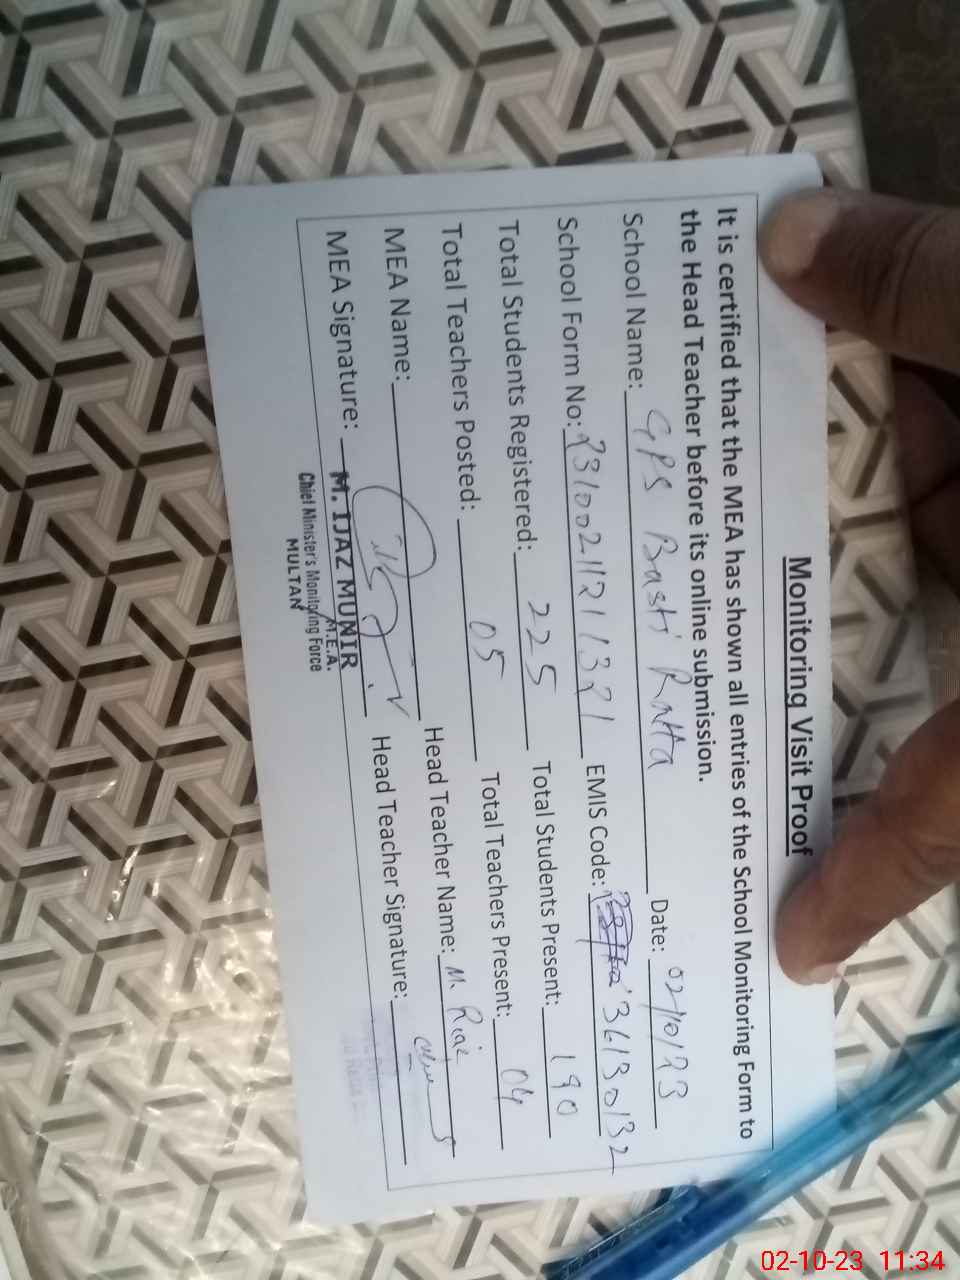 Monitoring Visit Proof
It is certified that the MEA has shown all entries of the School Monitoring Form to
the Head Teacher before its online submission.
School Name: GPS Basti Ratta Date: 02/10/23
School Form No: 23100211211321 EMIS Code: 36130132
Total Students Registered: 225 Total Students Present: 190
Total Teachers Posted: 05 Total Teachers Present: 04
MEA Name: Head Teacher Name: M. Riaz
MEA Signature: Head Teacher Signature:
M. IJAZ MUNIR
M.E.A.
Chief Minister's Monitoring Force
MULTAN
02-10-23 11:34